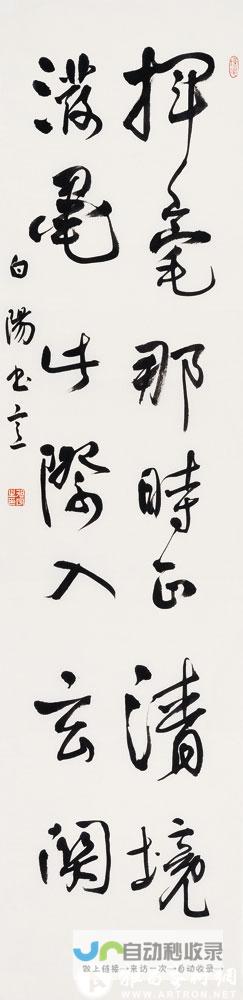 揮毫那時正清境
潑墨此際入玄關
白陽書
自动秒收录
做上链接→来访一次→自动收录
WWW.ARTRON.NET